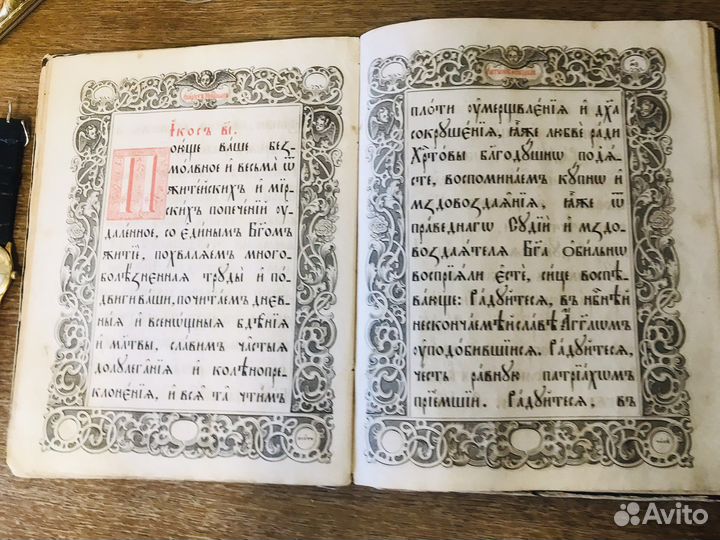 І҆́косъ в҃і.
Пою́ще ва́ше без̾-
мо́лвное и҆ весьма̀ ѿ
жите́йскихъ и҆ мір-
ски́хъ попече́ній ᲂу҆-
дале́нное, со є҆ди́нымъ бг҃омъ
житїѐ, похвалѧ́емъ много-
болѣ́зненныѧ трꙋды̀ и҆ по́-
двиги ва́ши, почита́емъ днє́в-
ныѧ и҆ всенѡ́щныѧ бдѣ́нїѧ
и҆ мл҃твы, сла́вимъ ча̑стыѧ
долꙋлега̑нїѧ и҆ колѣнопре-
клонє́нїѧ, и҆ всѧ̑ та̑ чти́мъ
пло́ти ᲂу҆мерщвле́нїѧ и҆ дх҃а
сокрꙋше́нїѧ, ꙗ҆̀же любвѐ ра́ди
Хрⷭ҇то́вы бл҃годꙋ́шнѡ под̾ѧ́-
сте, воспомина́емъ кꙋ́пнѡ и҆
мздовоздаѧ̑нїѧ, ꙗ҆̀же ѿ
пра́веднагѡ Сꙋдїѝ и҆ мздо-
возда́ѧтелѧ Бг҃а ѻ҆би́льнѡ
воспрїѧ́ли є҆стѐ, си́це воспѣ-
ва́юще: Ра́дꙋйтесѧ, въ нбⷭ҇нѣй
несконча́емѣй сла́вѣ А҆́гг҃лѡмъ
ᲂу҆подо́бившїисѧ. Ра́дꙋйтесѧ,
че́сть ра́внꙋю патрїа́рхѡмъ
прїе́мшїи. Ра́дꙋйтесѧ, въ
Avito